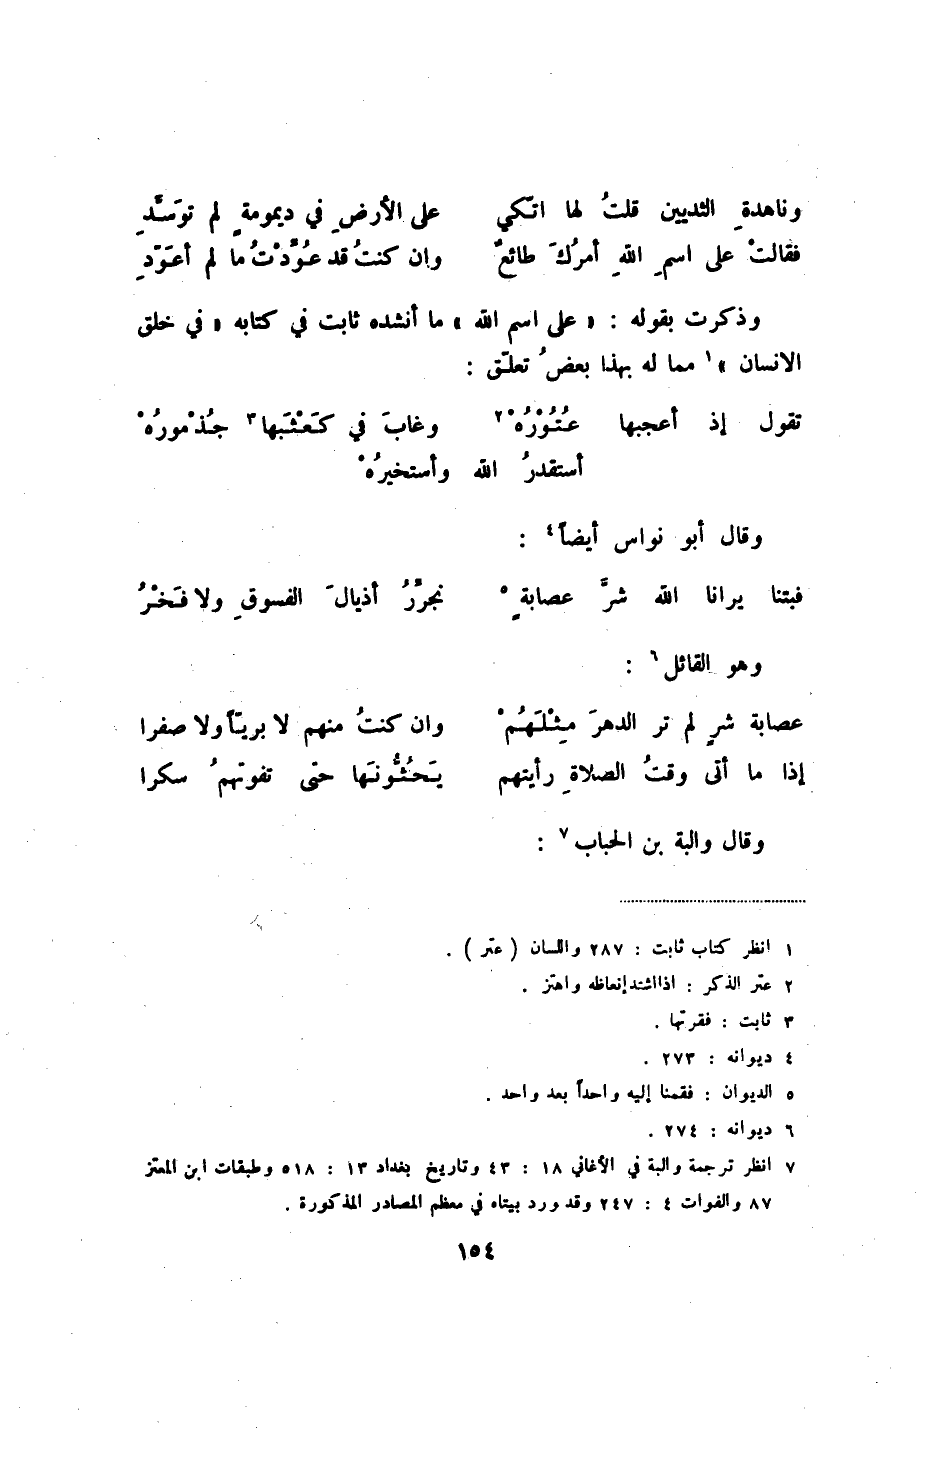 وناهدةِ الثديين قلتُ لها اتّكي على الأرضِ في ديمومةٍ لم توَسَّدِ
فقالتْ على اسمِ اللهِ أمرُكَ طائعٌ وإن كنتُ قد عُوِّدْتُ ما لم أعَوَّدِ
وذكرت بقوله : « على اسم الله » ما أنشده ثابت في كتابه « في خلق
الانسان »١ مما له بهذا بعضُ تعلّق :
تقول إذ أعجبها عُتُوْرُهْ٢ وغابَ في كَعْثَبها٣ جُذْمورُهْ
أستقدرُ الله وأستخيرُهْ
وقال أبو نواس أيضاً٤ :
فبتنا يرانا الله شرَّ عصابةٍ٥ نجرِّرُ أذيالَ الفسوقِ ولا فَخْرُ
وهو القائل٦ :
عصابة شرٍ لم تر الدهرَ مِثْلَهُمْ وان كنتُ منهم لا بريّاً ولا صفرا
إذا ما أتى وقتُ الصلاةِ رأيتهم يَحُثُّونَها حتّى تفوتهمُ سكرا
وقال والبة بن الحباب٧ :
١ انظر كتاب ثابت : ٢٨٧ واللسان ( عتر ) .
٢ عتّر الذكر : اذا اشتد إنعاظه واهتز .
٣ ثابت : فقرتها .
٤ ديوانه : ٢٧٣ .
٥ الديوان : فقمنا إليه واحداً بعد واحد .
٦ ديوانه : ٢٧٤ .
٧ انظر ترجمة والبة في الأغاني ١٨ : ٤٣ وتاريخ بغداد ١٣ : ٥١٨ وطبقات ابن المعتز
٨٧ والفوات ٤ : ٢٤٧ وقد ورد بيتاه في معظم المصادر المذكورة .
١٥٤